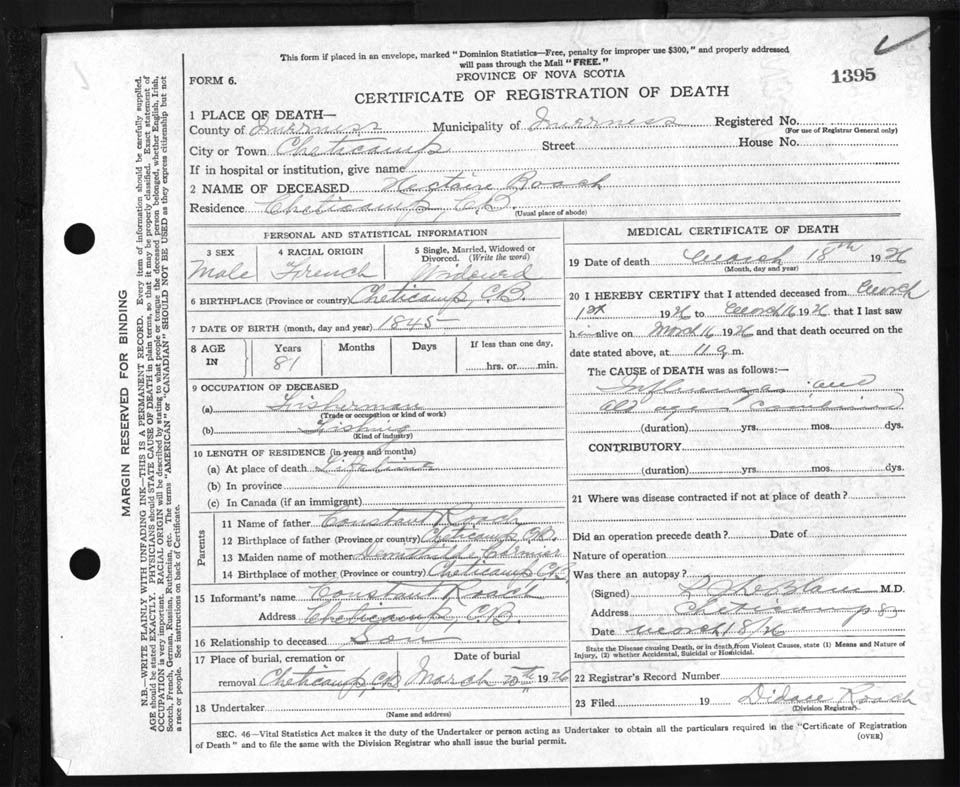 This form if placed in an envelope, marked "Dominion Statistics—Free, penalty for improper use $300," and properly addressed
will pass through the Mail "FREE."
FORM 6.
PROVINCE OF NOVA SCOTIA
1395
CERTIFICATE OF REGISTRATION OF DEATH
MARGIN RESERVED FOR BINDING
N.B.—WRITE PLAINLY WITH UNFADING INK—THIS IS A PERMANENT RECORD. Every item of information should be carefully supplied.
AGE should be stated EXACTLY. PHYSICIANS should STATE CAUSE OF DEATH in plain terms, so that it may be properly classified. Exact statement of
OCCUPATION is very important. RACIAL ORIGIN will be described by stating to what people or tongue the deceased person belonged, whether English, Irish,
Scotch, French, German, Russian, Ruthenian, etc. The terms "AMERICAN" or "CANADIAN" SHOULD NOT BE USED as they express citizenship but not
a race or people. See instructions on back of Certificate.
1 PLACE OF DEATH—
County of Inverness Municipality of Inverness Registered No.
(For use of Registrar General only)
City or Town Cheticamp Street House No.
If in hospital or institution, give name
2 NAME OF DECEASED Roach
Residence Cheticamp, C.B.
(Usual place of abode)
PERSONAL AND STATISTICAL INFORMATION
3 SEX 4 RACIAL ORIGIN 5 Single, Married, Widowed or
Divorced. (Write the word)
Male French Widowed
6 BIRTHPLACE (Province or country) Cheticamp, C.B.
7 DATE OF BIRTH (month, day and year) 1845
8 AGE IN Years Months Days If less than one day,
81 hrs. or min.
9 OCCUPATION OF DECEASED
(a) Fisherman
(Trade or occupation or kind of work)
(b) Fishing
(Kind of industry)
10 LENGTH OF RESIDENCE (in years and months)
(a) At place of death Lifetime
(b) In province
(c) In Canada (if an immigrant)
Parents
11 Name of father Constant Roach
12 Birthplace of father (Province or country) Cheticamp C.B.
13 Maiden name of mother Cormier
14 Birthplace of mother (Province or country) Cheticamp C.B.
15 Informant's name Constant Roach
Address Cheticamp, C.B.
16 Relationship to deceased Son
17 Place of burial, cremation or Date of burial
removal Cheticamp, C.B. March 20th 1926
18 Undertaker
(Name and address)
MEDICAL CERTIFICATE OF DEATH
19 Date of death March 18th 1926
(Month, day and year)
20 I HEREBY CERTIFY that I attended deceased from March
1st 1926 to March 16 1926 that I last saw
him alive on March 16 1926 and that death occurred on the
date stated above, at 11 a m.
The CAUSE of DEATH was as follows:—
Influenza and
old age combined
(duration) yrs. mos. dys.
CONTRIBUTORY
(duration) yrs. mos. dys.
21 Where was disease contracted if not at place of death?
Did an operation precede death? Date of
Nature of operation
Was there an autopsy?
(Signed) M.D.
Address Cheticamp
Date March 18/26
State the Disease causing Death, or in death from Violent Causes, state (1) Means and Nature of
Injury, (2) whether Accidental, Suicidal or Homicidal.
22 Registrar's Record Number
23 Filed 19 Didace Roach
(Division Registrar)
SEC. 46—Vital Statistics Act makes it the duty of the Undertaker or person acting as Undertaker to obtain all the particulars required in the "Certificate of Registration
of Death" and to file the same with the Division Registrar who shall issue the burial permit.
(OVER)